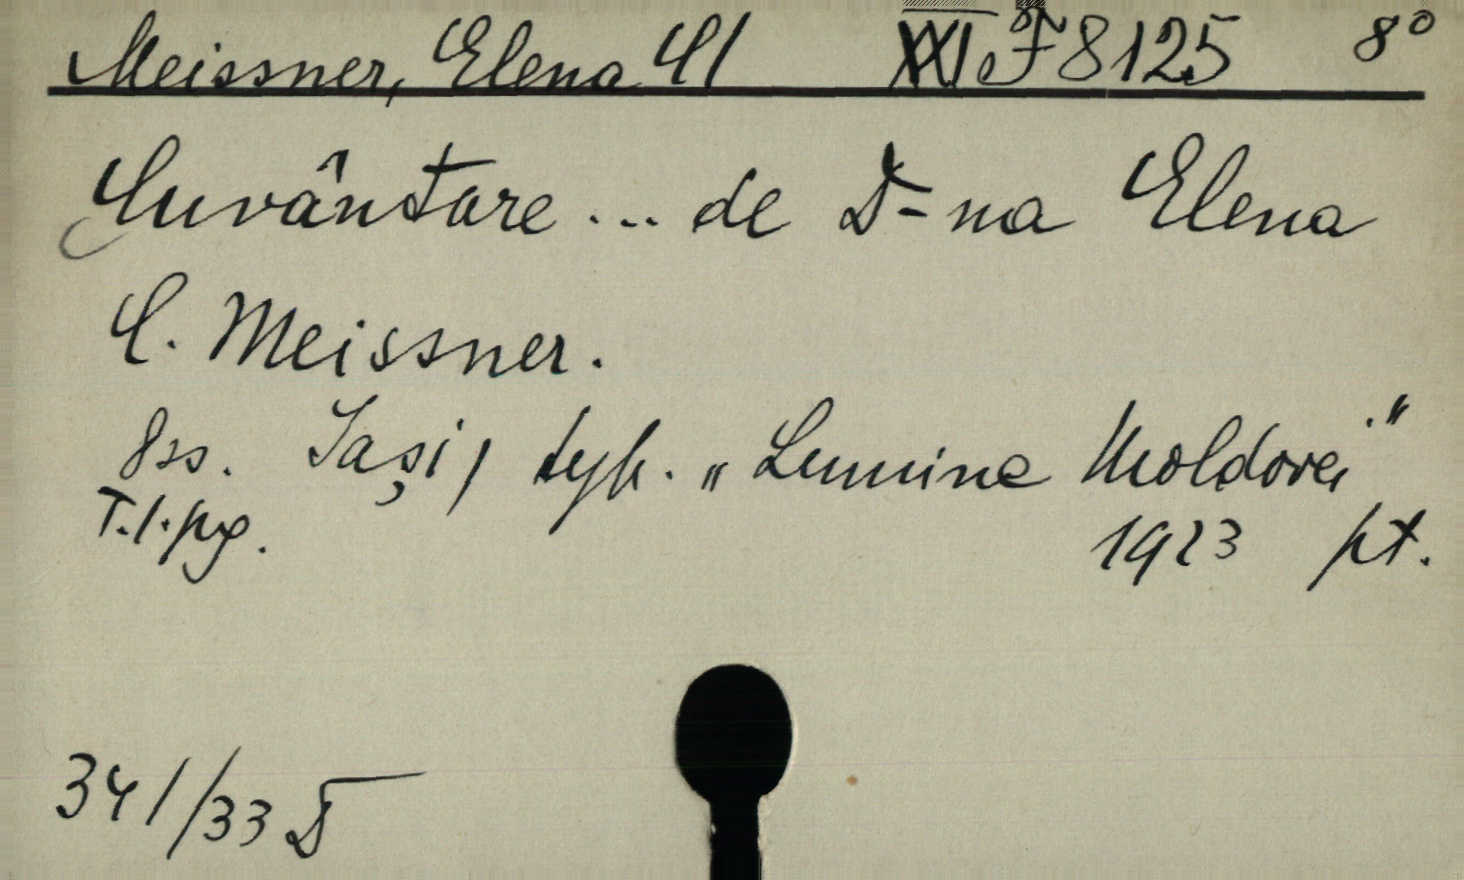 Meissner, Elena C| XXI F 8125 8°
Cuvântare ... de D-na Elena
C. Meissner.
8ss. Iași, typ. „Lumina Moldovei."
T.l.pg. 1923 pt.
341/33 D